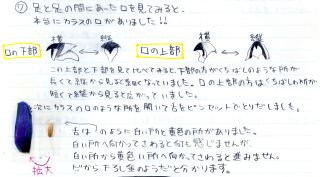 ⑦ 足と足の間にあった口を見てみると、
本当にカラスの口がありました!!
口の下部
横
縦
口の上部
横
縦
この上部と下部を見て比べてみると、下部の方がくちばしのような所が
長くて縦から見ると細くなっていました。口の上部の方はくちばしの所が
短くて縦から見ると広がっていました。
次にカラスの口のような所を開いて舌をピンセットでとりだしました。
舌は のように白い所と黄色の所がありました。
白い所へ向かってさわると何も感じませんが、
白い所から黄色い所へ向かってさわると進みません。
だから下ろし金のようだと分かります。
拡大